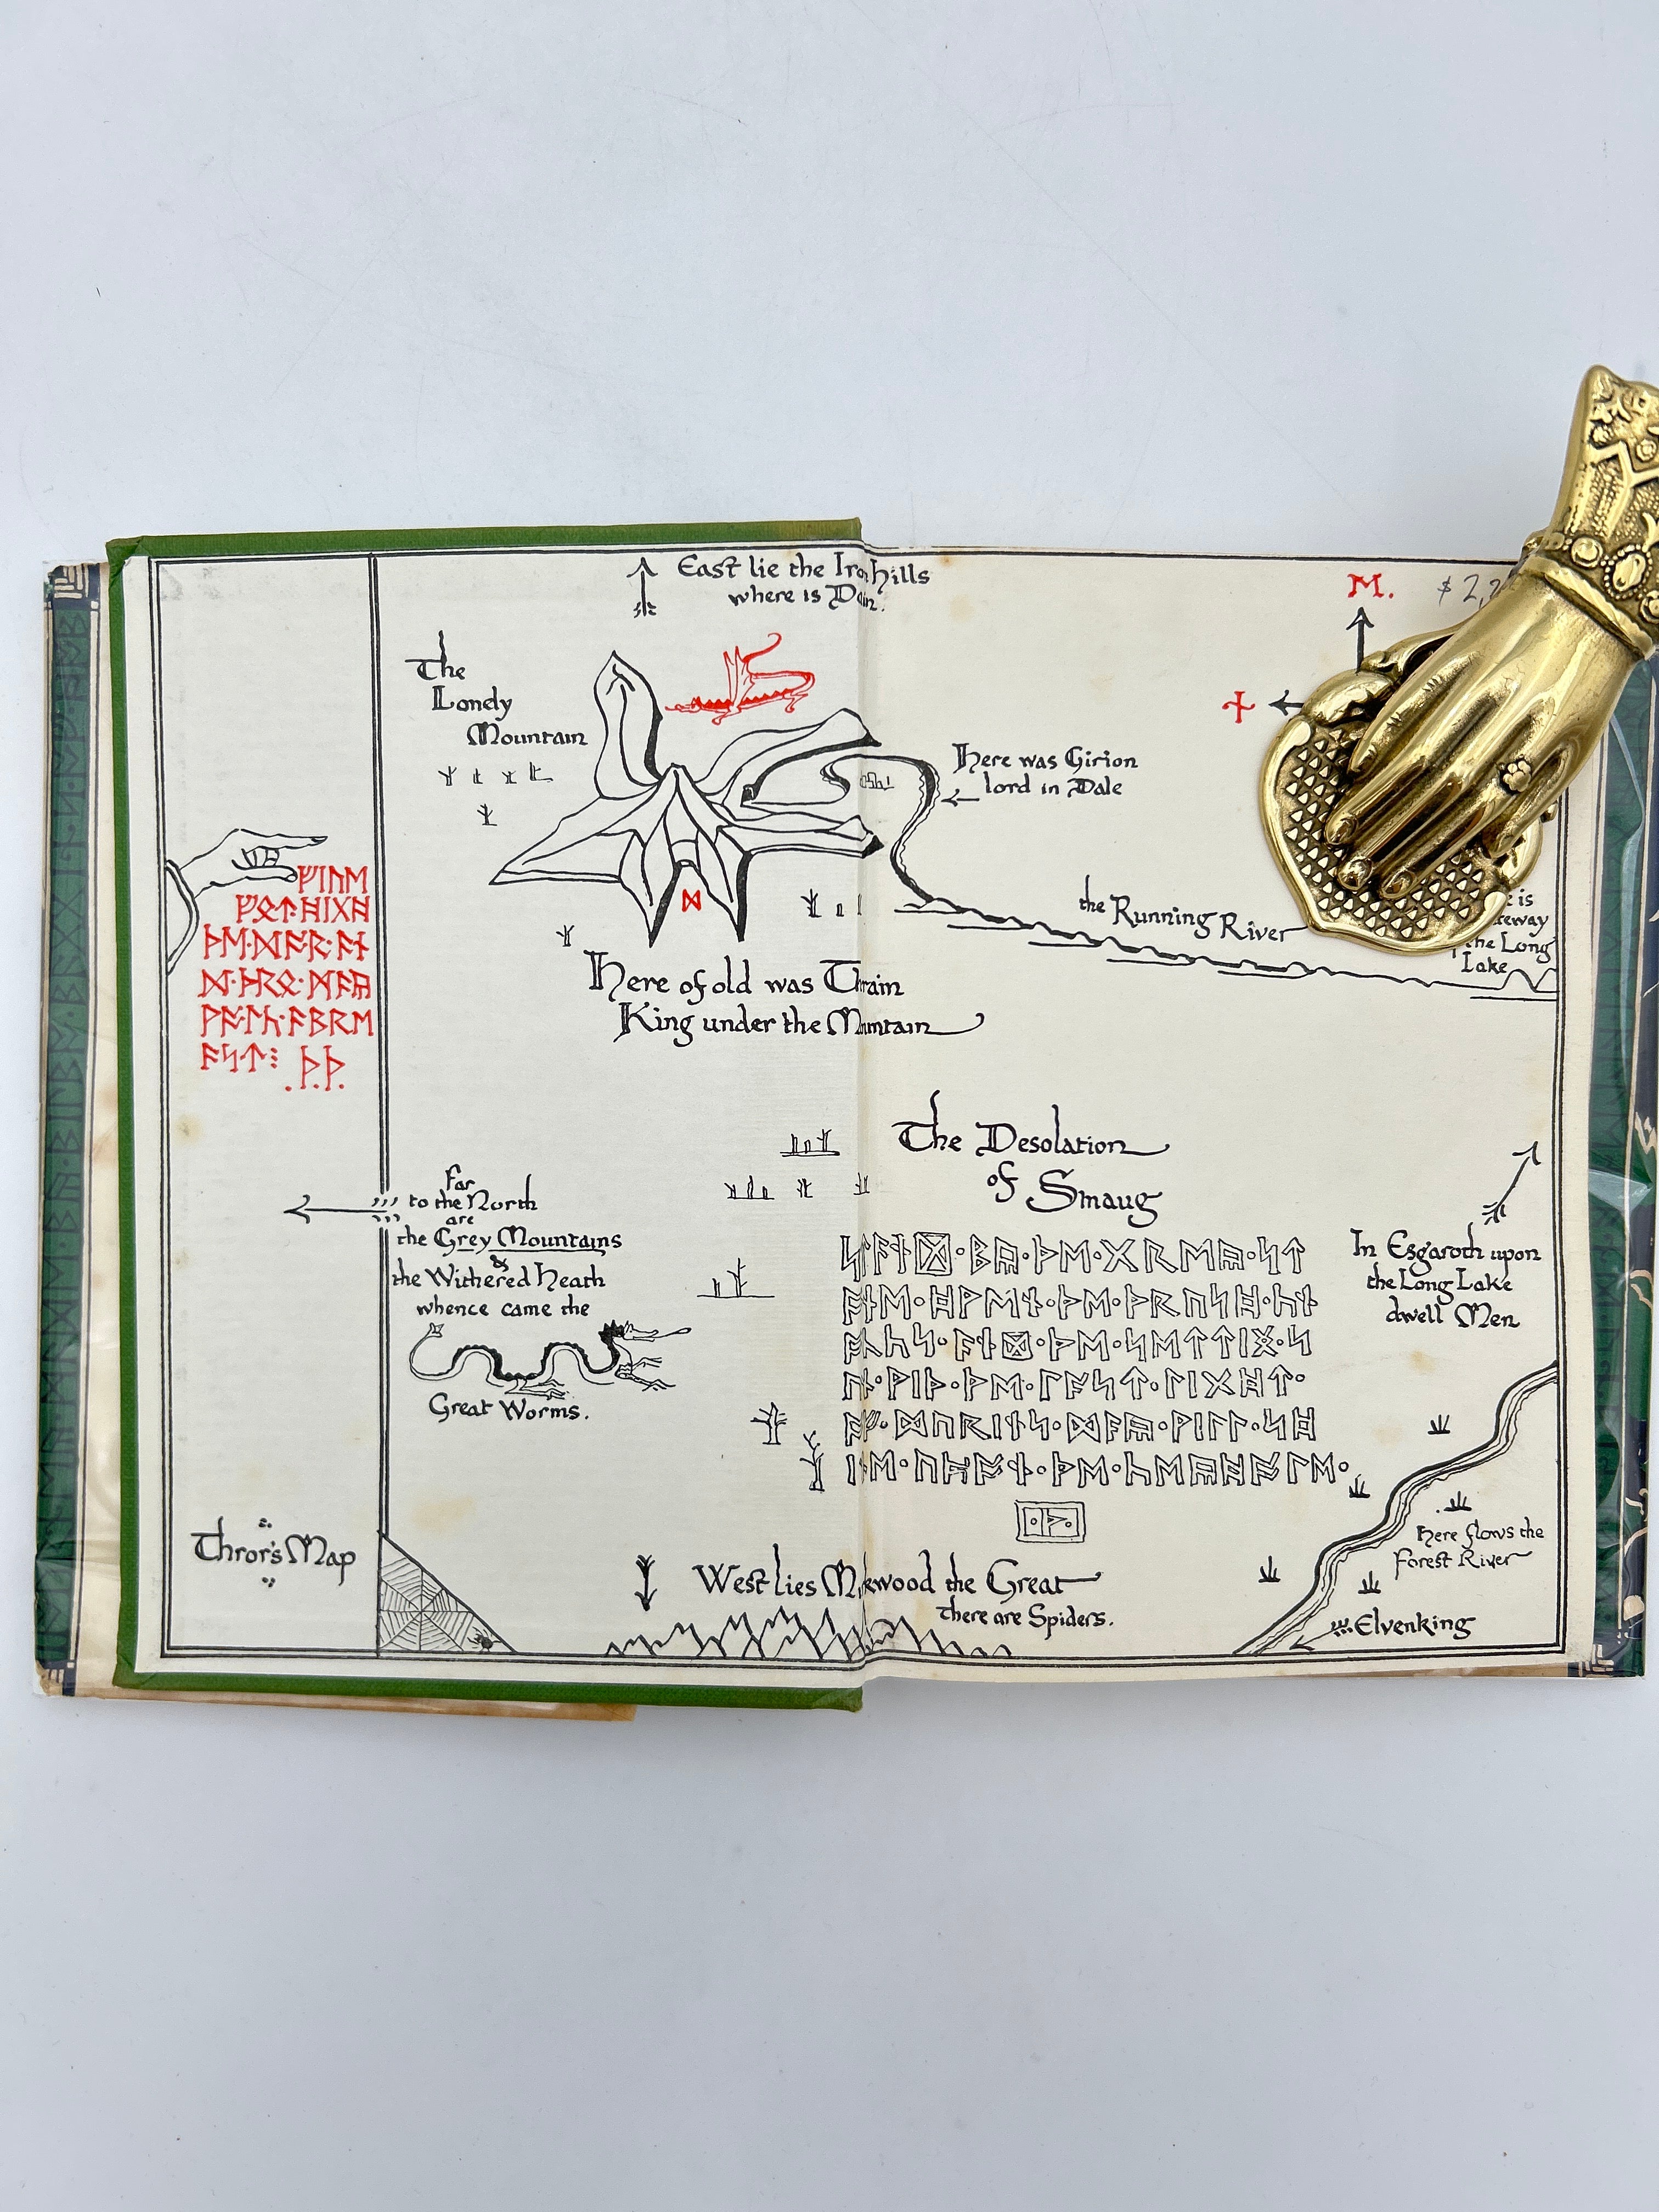 East lie the Iron hills
where is Dain.
ᛖ.
ᚾ
The
Lonely
Mountain
Here was Girion
lord in Dale
ᛞ
the Running River
is
the Long
Lake
Here of old was Thrain
King under the Mountain
ᚠᛁᚢᛖ
ᚠᛟᛏ·ᚻᛁᚷᚻ
ᚦᛖ·ᛞᚩᚱ·ᚪᚾ
ᛞ·ᚦᚱᛟ·ᛗᚪᚣ
ᚹᚪᛚᚳ·ᚪᛒᚱᛖ
ᚪᛋᛏ⁝ .ᚦ.ᚦ.
The Desolation
of Smaug
Far
to the North
are
the Grey Mountains
&
the Withered Heath
whence came the
Great Worms.
ᛋᛏᚪᚾᛞ·ᛒᚣ·ᚦᛖ·ᚷᚱᛖᚣ·ᛋᛏ
ᚩᚾᛖ·ᚻᚹᛖᚾ·ᚦᛖ·ᚦᚱᚢᛋᚻ·ᚳᚾ
ᚩᚳᚳᛋ·ᚪᚾᛞ·ᚦᛖ·ᛋᛖᛏᛏᛁᛝ·ᛋ
ᚢᚾ·ᚹᛁᚦ·ᚦᛖ·ᛚᚪᛋᛏ·ᛚᛁᚷᚻᛏ·
ᚩᚠ·ᛞᚢᚱᛁᚾᛋ·ᛞᚪᚣ·ᚹᛁᛚᛚ·ᛋᚻ
ᛁᚾᛖ·ᚢᛈᚩᚾ·ᚦᛖ·ᚳᛖᚣᚻᚩᛚᛖ·
·ᚦ·
In Esgaroth upon
the Long Lake
dwell Men
Here flows the
Forest River
Elvenking
Thror's Map
West lies Mirkwood the Great
there are Spiders.